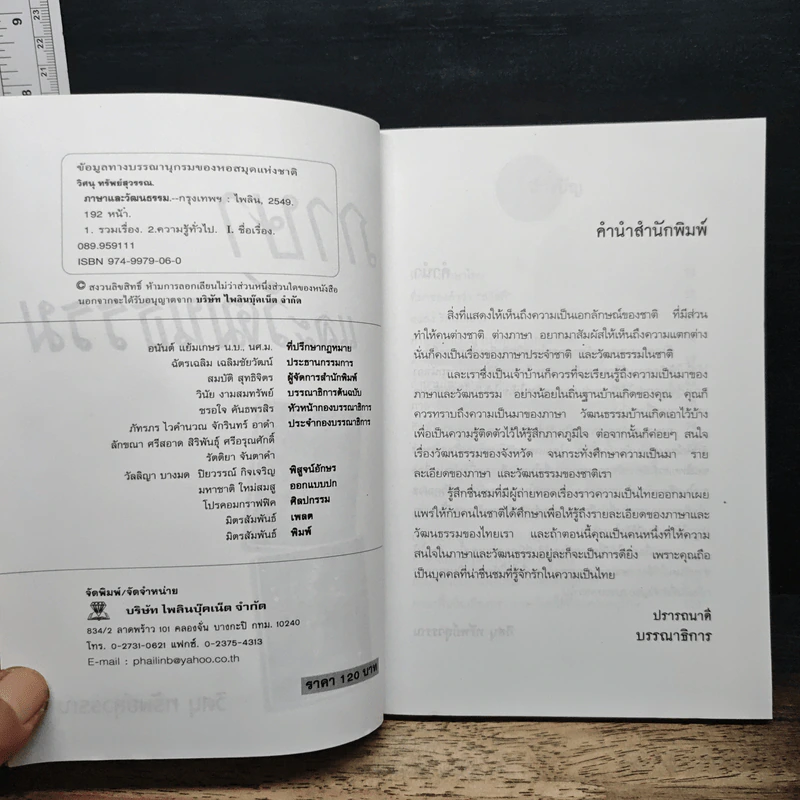 ข้อมูลทางบรรณานุกรมของหอสมุดแห่งชาติ
วิศนุ ทรัพย์สุวรรณ.
ภาษาและวัฒนธรรม.--กรุงเทพฯ : ไพลิน, 2549.
192 หน้า.
1. รวมเรื่อง. 2.ความรู้ทั่วไป. I. ชื่อเรื่อง.
089.959111
ISBN 974-9979-06-0
© สงวนลิขสิทธิ์ ห้ามการลอกเลียนไม่ว่าส่วนหนึ่งส่วนใดของหนังสือ
นอกจากจะได้รับอนุญาตจาก บริษัท ไพลินบุ๊คเน็ต จำกัด
อนันต์ แย้มเกษร น.บ., นศ.ม. ที่ปรึกษากฎหมาย
ฉัตรเฉลิม เฉลิมชัยวัฒน์ ประธานกรรมการ
สมบัติ สุทธิจิตร ผู้จัดการสำนักพิมพ์
วินัย งามสมทรัพย์ บรรณาธิการต้นฉบับ
ชรอใจ คันธพรสิร หัวหน้ากองบรรณาธิการ
ภัทรภร ไวคำนวณ จักรินทร์ อาดำ ประจำกองบรรณาธิการ
ลักขณา ศรีสอาด สิริพันธุ์ ศรีอรุณศักดิ์
รัตติยา จันตาคำ
วัลลิญา บางมด ปิยวรรณ์ กิจเจริญ พิสูจน์อักษร
มหาชาติ ใหม่สมสู ออกแบบปก
โปรคอมกราฟฟิค ศิลปกรรม
มิตรสัมพันธ์ เพลต
มิตรสัมพันธ์ พิมพ์
จัดพิมพ์/จัดจำหน่าย
บริษัท ไพลินบุ๊คเน็ต จำกัด
834/2 ลาดพร้าว 101 คลองจั่น บางกะปิ กทม. 10240
โทร. 0-2731-0621 แฟกซ์. 0-2375-4313
E-mail : phailinb@yahoo.co.th
ราคา 120 บาท
คำนำสำนักพิมพ์
สิ่งที่แสดงให้เห็นถึงความเป็นเอกลักษณ์ของชาติ ที่มีส่วน
ทำให้คนต่างชาติ ต่างภาษา อยากมาสัมผัสให้เห็นถึงความแตกต่าง
นั่นก็คงเป็นเรื่องของภาษาประจำชาติ และวัฒนธรรมในชาติ
และเราซึ่งเป็นเจ้าบ้านก็ควรที่จะเรียนรู้ถึงความเป็นมาของ
ภาษาและวัฒนธรรม อย่างน้อยในถิ่นฐานบ้านเกิดของคุณ คุณก็
ควรทราบถึงความเป็นมาของภาษา วัฒนธรรมบ้านเกิดเอาไว้บ้าง
เพื่อเป็นความรู้ติดตัวไว้ให้รู้สึกภาคภูมิใจ ต่อจากนั้นก็ค่อยๆ สนใจ
เรื่องวัฒนธรรมของจังหวัด จนกระทั่งศึกษาความเป็นมา ราย
ละเอียดของภาษา และวัฒนธรรมของชาติเรา
รู้สึกชื่นชมที่มีผู้ถ่ายทอดเรื่องราวความเป็นไทยออกมาเผย
แพร่ให้กับคนในชาติได้ศึกษาเพื่อให้รู้ถึงรายละเอียดของภาษาและ
วัฒนธรรมของไทยเรา และถ้าตอนนี้คุณเป็นคนหนึ่งที่ให้ความ
สนใจในภาษาและวัฒนธรรมอยู่ละก็จะเป็นการดียิ่ง เพราะคุณถือ
เป็นบุคคลที่น่าชื่นชมที่รู้จักรักในความเป็นไทย
ปรารถนาดี
บรรณาธิการ